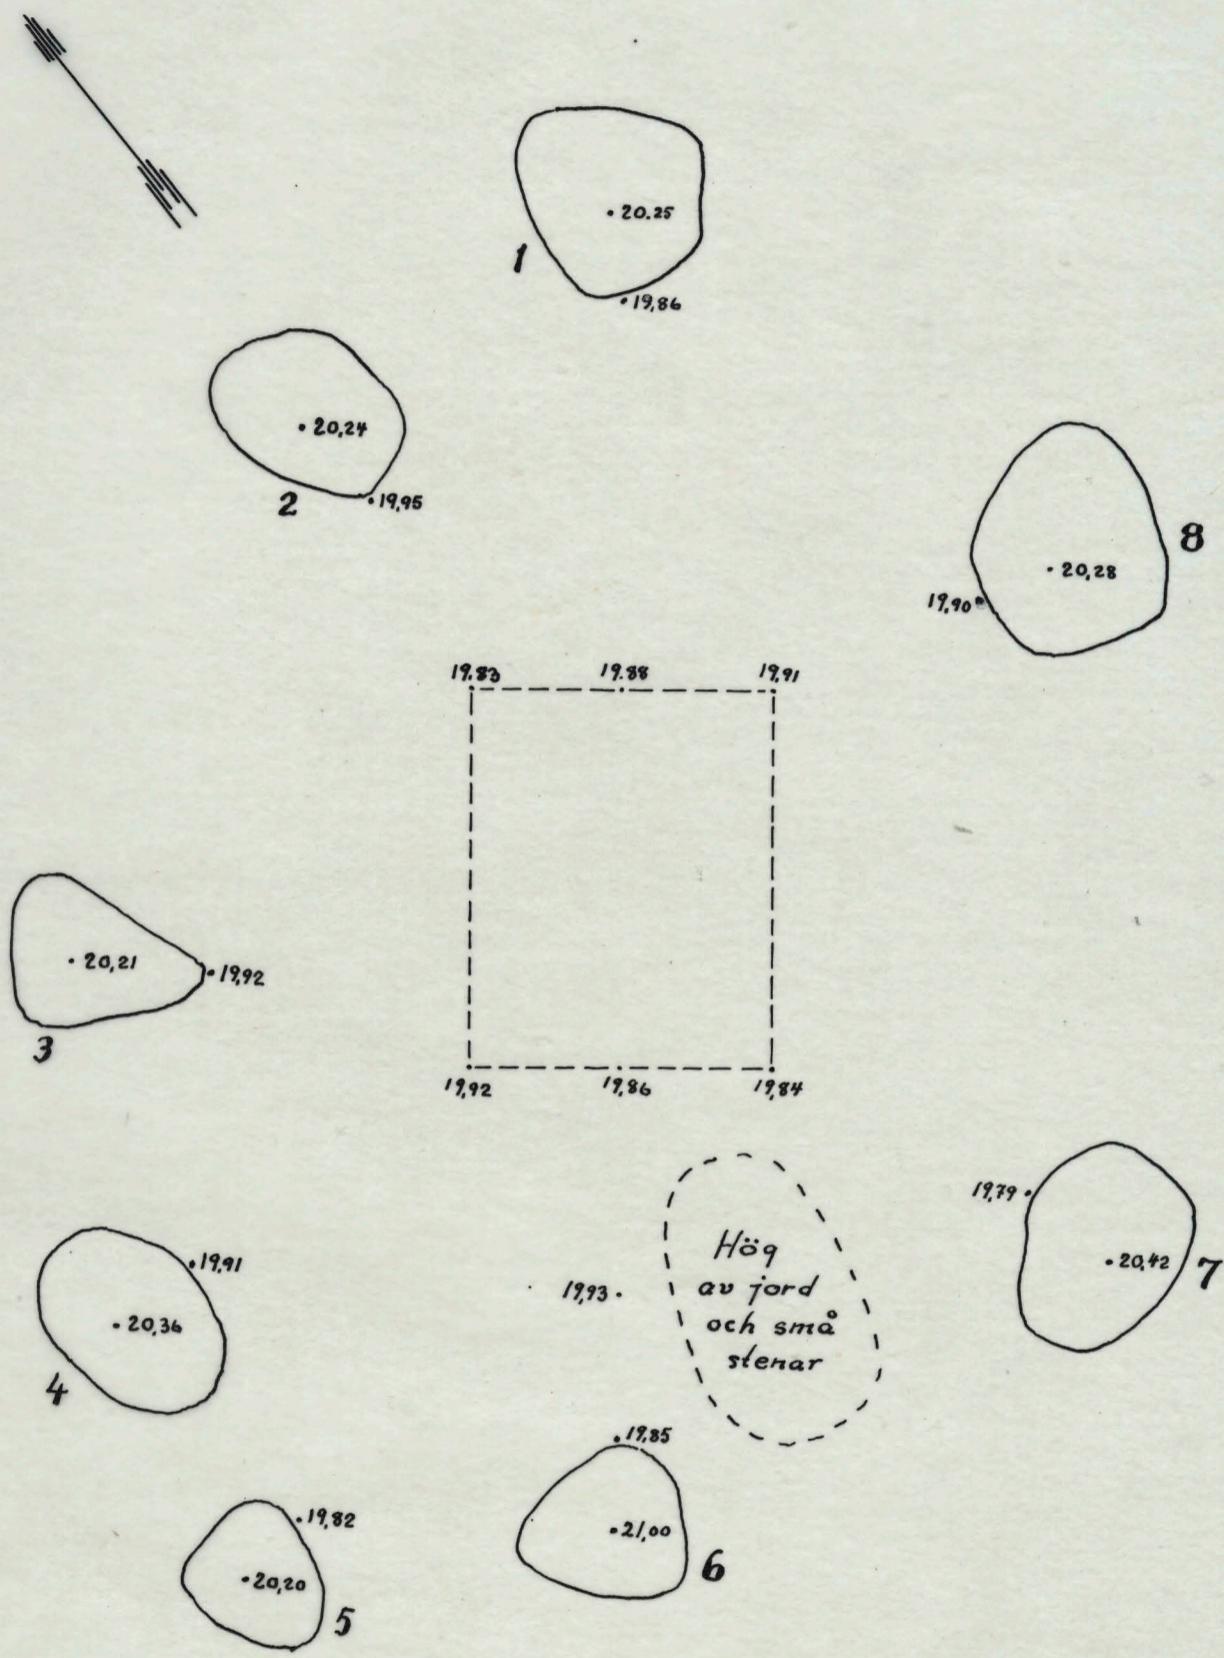 20.25
1
19,86
20,24
2
19,95
8
20,28
19,90
19.83 19.88 19,91
20,21
19,92
3
19,92 19,86 19,84
19,79
20,42
7
19,91
20,36
4
19,93
Hög
av jord
och små
stenar
19,85
21,00
6
19,82
20,20
5